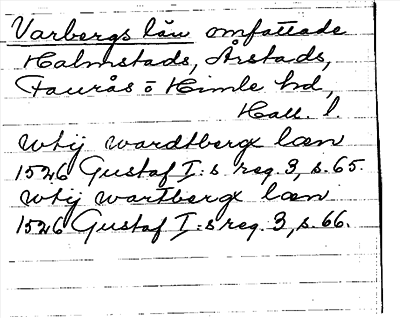 Varbergs län omfattade
Halmstads, Årstads,
Faurås o Himle hd,
Hall. l.
wtij wardtbergx læn
1526 Gustaf I:s reg. 3, s. 65.
wtij wartbergx læn
1526 Gustaf I:s reg. 3, s. 66.